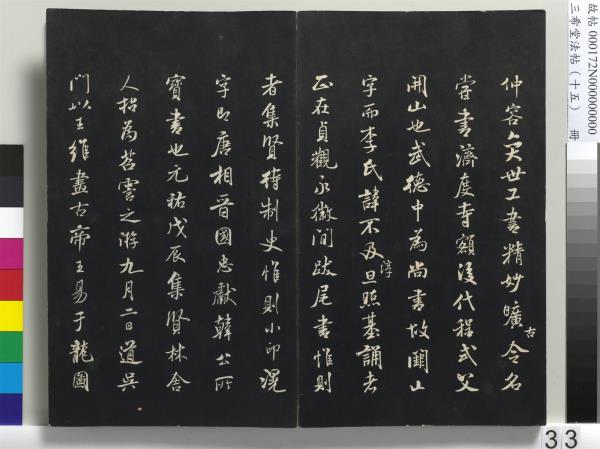 故帖 000172N000000000
三希堂法帖（十五） 冊
仲容奕世工書精妙曠古令名
嘗書濟度寺額後代程式父
開山也武德中為尚書故闕山
字而李氏諱不及淳旦照基誦者
正在貞觀永徽間跋尾書惟則
者集賢待制史惟則小印滉
字即唐相晉國忠獻韓公所
寶書也元祐戊辰集賢林舍
人招為苕霅之遊九月二日道吳
門以王維畫古帝王易于龍圖
33